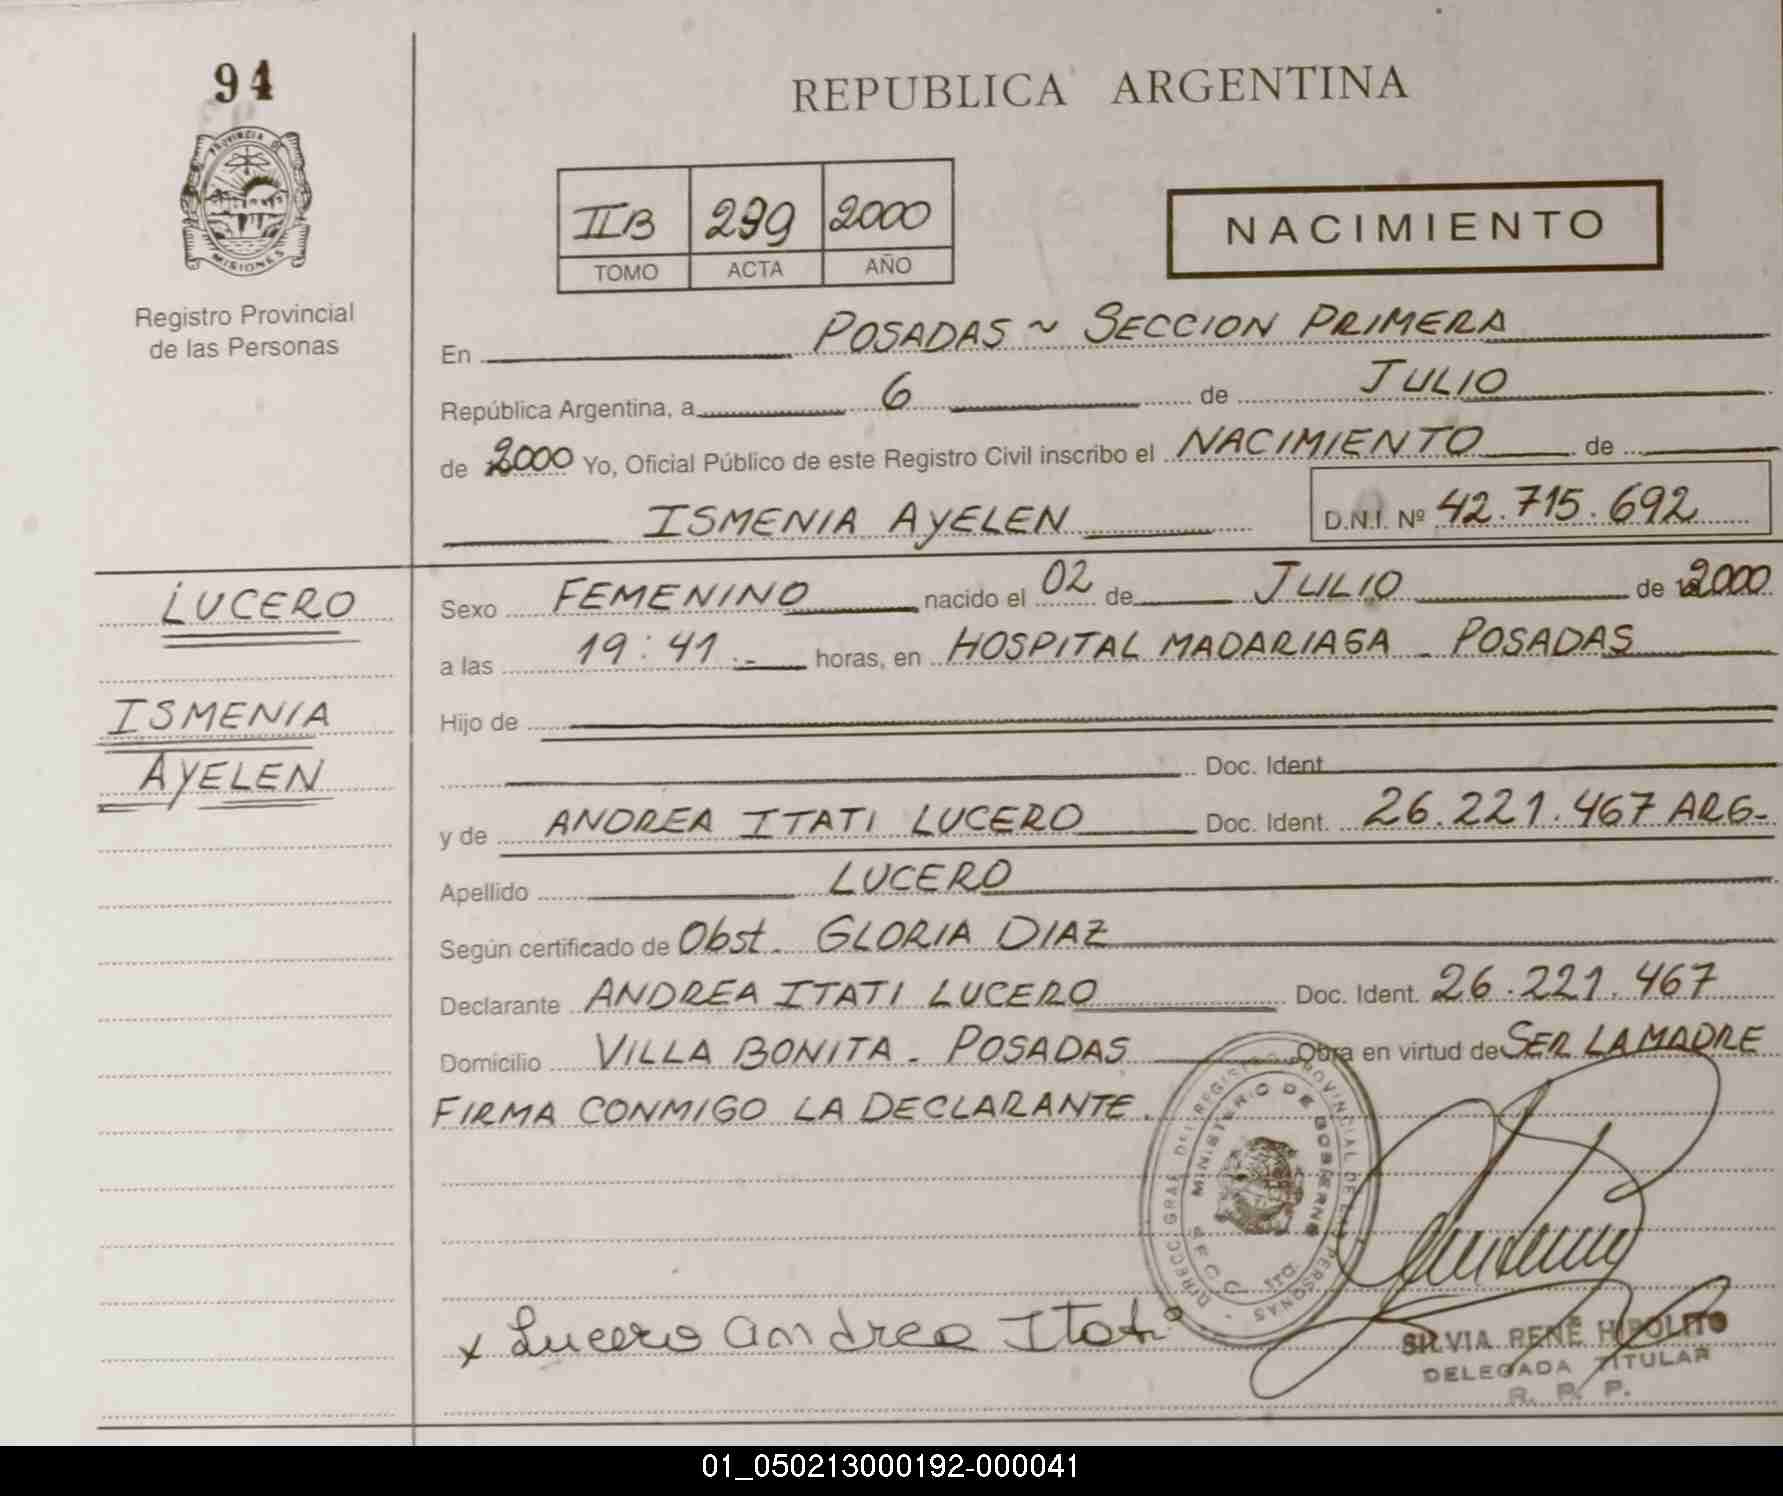 94
PROVINCIA DE
MISIONES
Registro Provincial
de las Personas
REPUBLICA ARGENTINA
IIB 299 2000
TOMO ACTA AÑO
NACIMIENTO
En POSADAS ~ SECCION PRIMERA
República Argentina, a 6 de JULIO
de 2000 Yo, Oficial Público de este Registro Civil inscribo el NACIMIENTO de
ISMENIA AYELEN D.N.I. Nº 42.715.692
LUCERO
ISMENIA
AYELEN
Sexo FEMENINO nacido el 02 de JULIO de 2000
a las 19:41.- horas, en HOSPITAL MADARIAGA - POSADAS
Hijo de
Doc. Ident.
y de ANDREA ITATI LUCERO Doc. Ident. 26.221.467 ARG-
Apellido LUCERO
Según certificado de Obst. GLORIA DIAZ
Declarante ANDREA ITATI LUCERO Doc. Ident. 26.221.467
Domicilio VILLA BONITA - POSADAS Obra en virtud de SER LA MADRE
FIRMA CONMIGO LA DECLARANTE.
DIRECC GRAL DEL REGISTRO PROVINCIAL DE LAS PERSONAS
MINISTERIO DE GOBIERNO
x Lucero Andrea Itati
SILVIA RENÉ HIPOLITO
DELEGADA TITULAR
R. P. P.
01_050213000192-000041